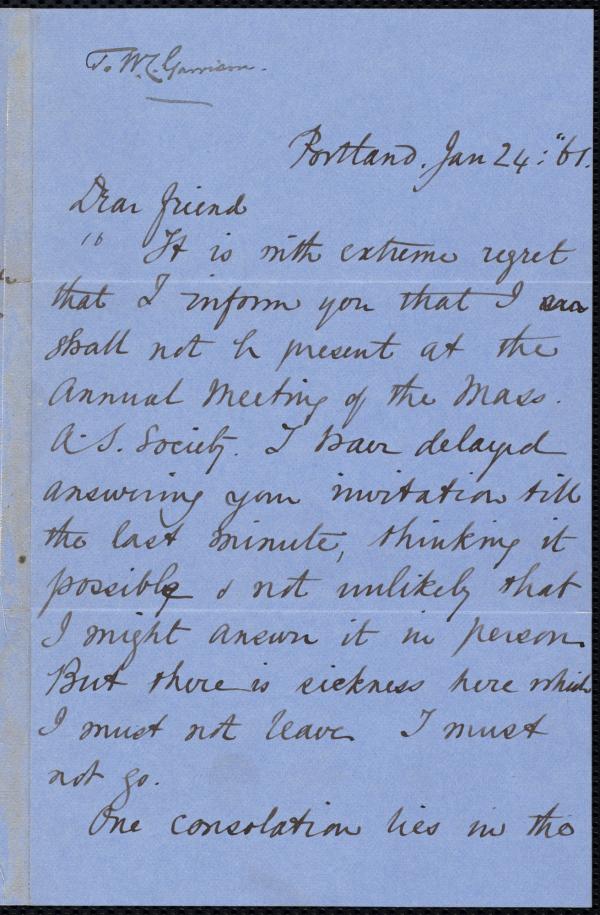 To W. L. Garrison.
Portland. Jan 24: "61.
Dear friend
" It is with extreme regret
that I inform you that I
shall not be present at the
Annual Meeting of the Mass.
A. S. Society. I have delayed
answering your invitation till
the last minute, thinking it
possible & not unlikely that
I might answer it in person.
But there is sickness here which
I must not leave I must
not go.
One consolation lies in the